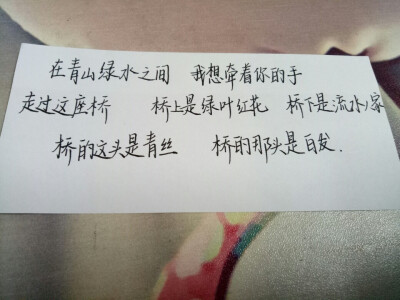 在青山绿水之间 我想牵着你的手
走过这座桥 桥上是绿叶红花 桥下是流水人家
桥的这头是青丝 桥的那头是白发.